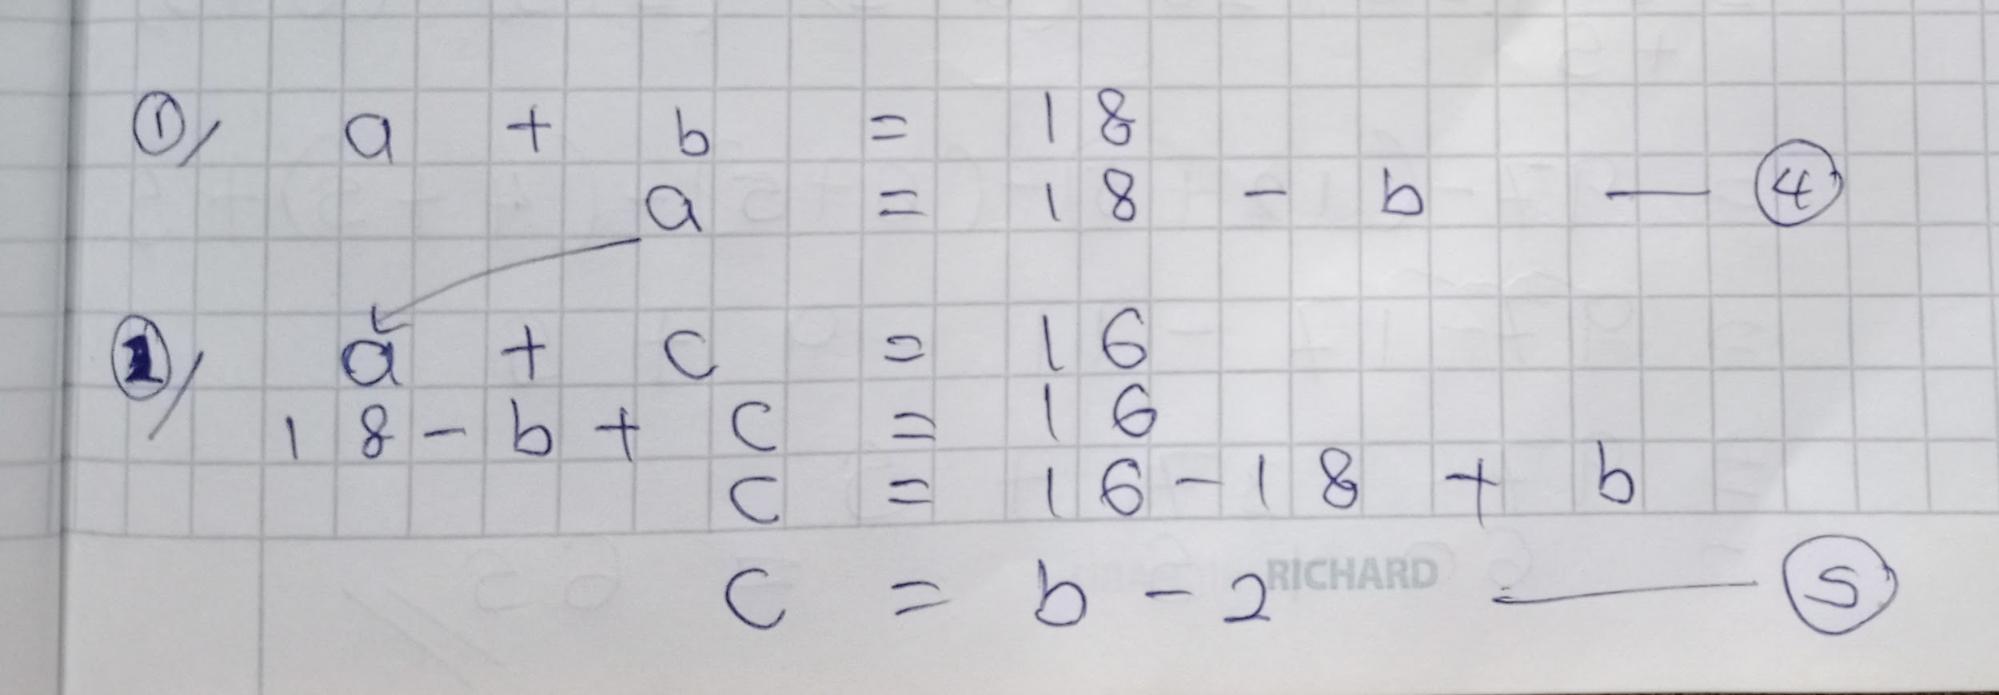 ①/ a + b = 18
a = 18 - b — ④
②/ a + c = 16
18 - b + c = 16
c = 16 - 18 + b
c = b - 2 — ⑤
RICHARD